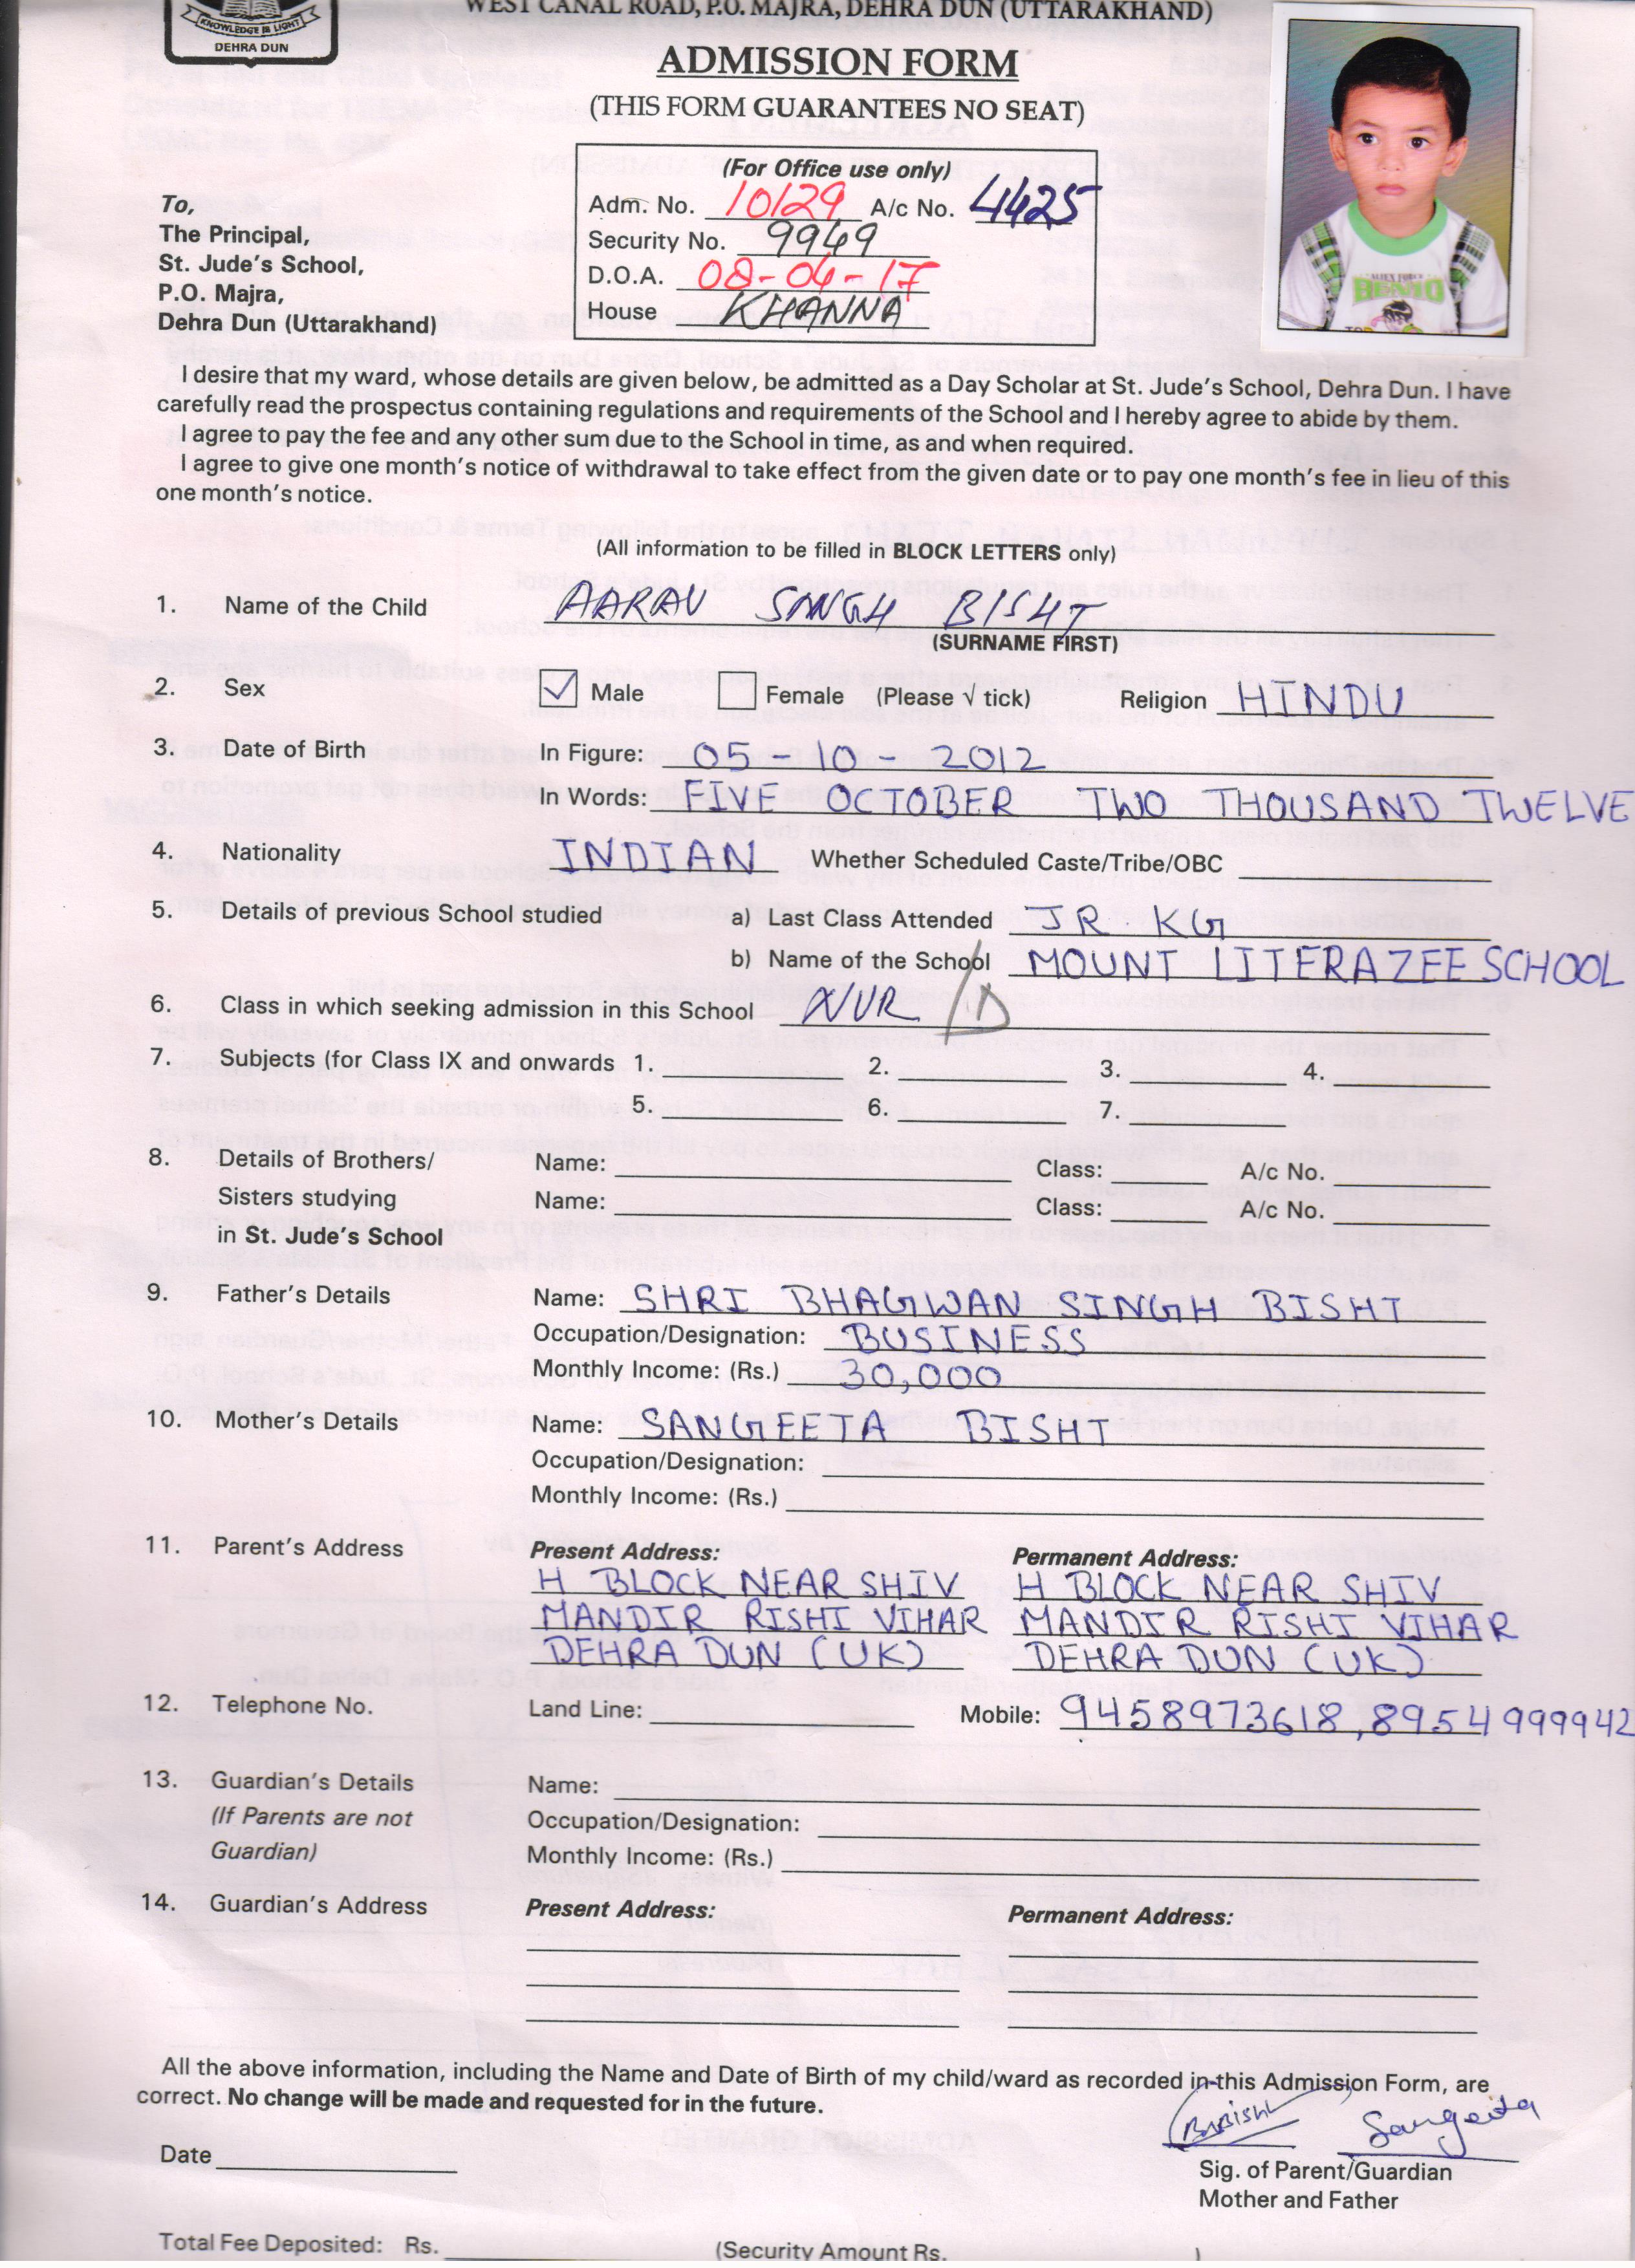 WEST CANAL ROAD, P.O. MAJRA, DEHRA DUN (UTTARAKHAND)
KNOWLEDGE IS LIGHT
DEHRA DUN
ADMISSION FORM
(THIS FORM GUARANTEES NO SEAT)
(For Office use only)
Adm. No. 10129 A/c No. 4425
Security No. 9949
D.O.A. 08-04-17
House KHANNA
To,
The Principal,
St. Jude's School,
P.O. Majra,
Dehra Dun (Uttarakhand)
I desire that my ward, whose details are given below, be admitted as a Day Scholar at St. Jude's School, Dehra Dun. I have
carefully read the prospectus containing regulations and requirements of the School and I hereby agree to abide by them.
I agree to pay the fee and any other sum due to the School in time, as and when required.
I agree to give one month's notice of withdrawal to take effect from the given date or to pay one month's fee in lieu of this
one month's notice.
(All information to be filled in BLOCK LETTERS only)
1. Name of the Child AARAV SINGH BISHT
(SURNAME FIRST)
2. Sex ✓ Male Female (Please √ tick) Religion HINDU
3. Date of Birth In Figure: 05 - 10 - 2012
In Words: FIVE OCTOBER TWO THOUSAND TWELVE
4. Nationality INDIAN Whether Scheduled Caste/Tribe/OBC
5. Details of previous School studied a) Last Class Attended JR. KG
b) Name of the School MOUNT LITERAZEE SCHOOL
6. Class in which seeking admission in this School NUR /D
7. Subjects (for Class IX and onwards 1. 2. 3. 4.
5. 6. 7.
8. Details of Brothers/ Name: Class: A/c No.
Sisters studying Name: Class: A/c No.
in St. Jude's School
9. Father's Details Name: SHRI BHAGWAN SINGH BISHT
Occupation/Designation: BUSINESS
Monthly Income: (Rs.) 30,000
10. Mother's Details Name: SANGEETA BISHT
Occupation/Designation:
Monthly Income: (Rs.)
11. Parent's Address Present Address: Permanent Address:
H BLOCK NEAR SHIV H BLOCK NEAR SHIV
MANDIR RISHI VIHAR MANDIR RISHI VIHAR
DEHRA DUN (UK) DEHRA DUN (UK)
12. Telephone No. Land Line: Mobile: 9458973618, 8954999942
13. Guardian's Details Name:
(If Parents are not Occupation/Designation:
Guardian) Monthly Income: (Rs.)
14. Guardian's Address Present Address: Permanent Address:
All the above information, including the Name and Date of Birth of my child/ward as recorded in this Admission Form, are
correct. No change will be made and requested for in the future.
Sangeeta
Date
Sig. of Parent/Guardian
Mother and Father
Total Fee Deposited: Rs. (Security Amount Rs. )